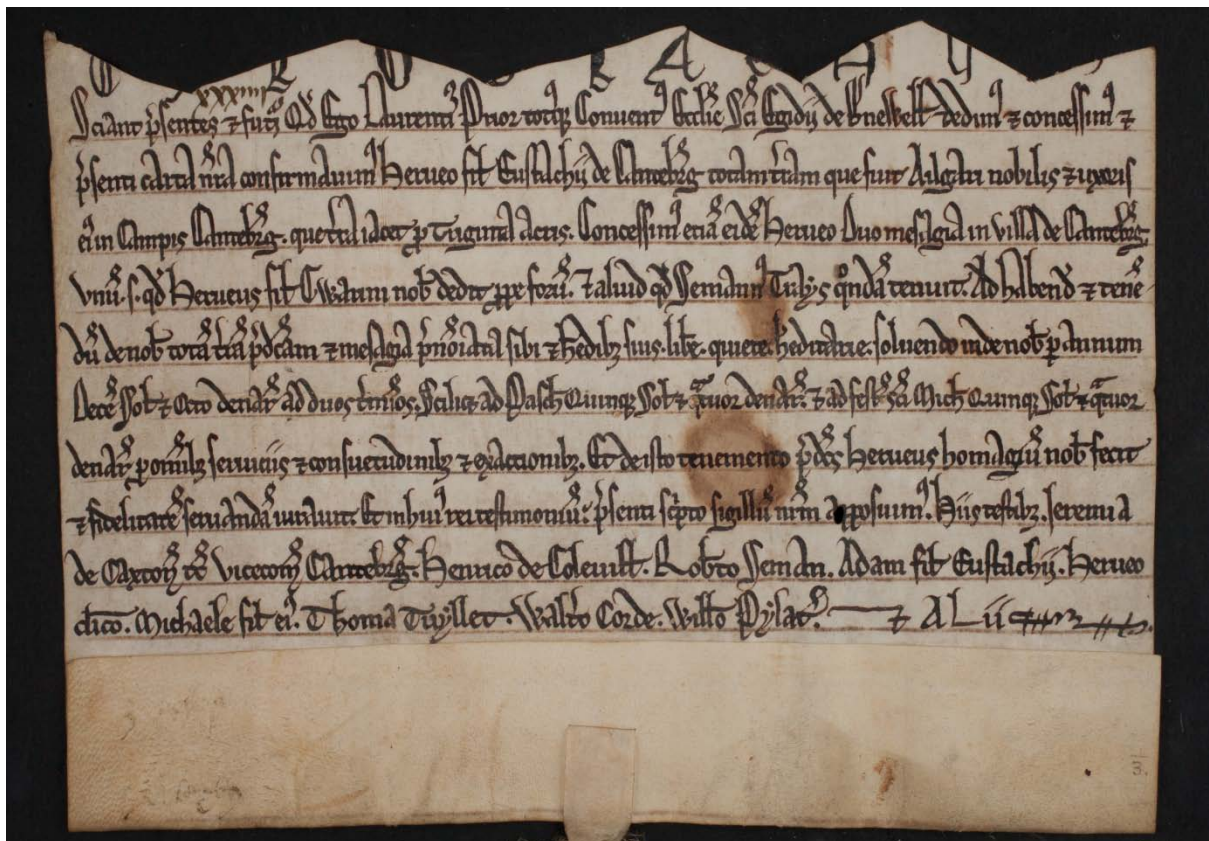 C Y R O G R A P H U
xxxiiij
Sciant p̄sentes ⁊ fut'i Qd̄ Ego Laurentiꝰ Prior totiꝰq; Conventꝰ Eccl̄ie Sc̄i Egidij de Bnewell̄ dedimꝰ ⁊ concessimꝰ ⁊
p̄senti carta nr̄a confirmavimꝰ Herueo fil̄ Eustachij de Cantebr̄g totam t'ram que fuit Ailgari nobilis ⁊ uxoris
eiꝰ in Campis Cantebr̄g. que t'ra iacet p̄ Triginta Acris. Concessimꝰ etiā eidē Herueo Duo mesagia in villa de Cantebr̄g
vnū .s. qd̄ Herueus fil̄ Warini nob̄ dedit ꝓpe forū. ⁊ aliud qd̄ Semannꝰ q̊ndā tenuit. Ad habend̄ ⁊ tenē-
dū de nob̄ totā t'rā p̄dc̄am ⁊ mesagia p̄nōiata sibi ⁊ H̄edib; suis. lib̄e. quiete. h̄editarie. soluendo inde nob̄ p̱ Annum
Decē Sol̄ ⁊ Octo denar̄ ad duos t'minos. Scilic; ad Pasch̄ Quinq; Sol̄ ⁊ q̄tuor denar̄. ⁊ ad fest̄ sc̄i Mich̄ Quinq; Sol̄ ⁊ q̄tuor
denar̄ p̱ om̄ib; seruiciis ⁊ consuetudinib; ⁊ exactionib;. Et de isto tenemento p̄dc̄s Herueus homagiū nob̄ fecit
⁊ fidelitatē seruandā iurauit. Et in huiꝰ rei testimoniū: p̄senti sc̄pto sigillū nr̄m apposuimꝰ. Hiis testib;. Jeremia
de Caxton̄ tc̄ vicecom̄ Cantebr̄g. Henrico de Colevill̄. Rob̄to Seman̄. Adam fil̄ Eustachij. Herueo
cl̄ico. Michaele fil̄ eiꝰ. Thoma Tuyllet. Walt'o Corde. Will̄o Pylat. ⁊ ALiis
3.